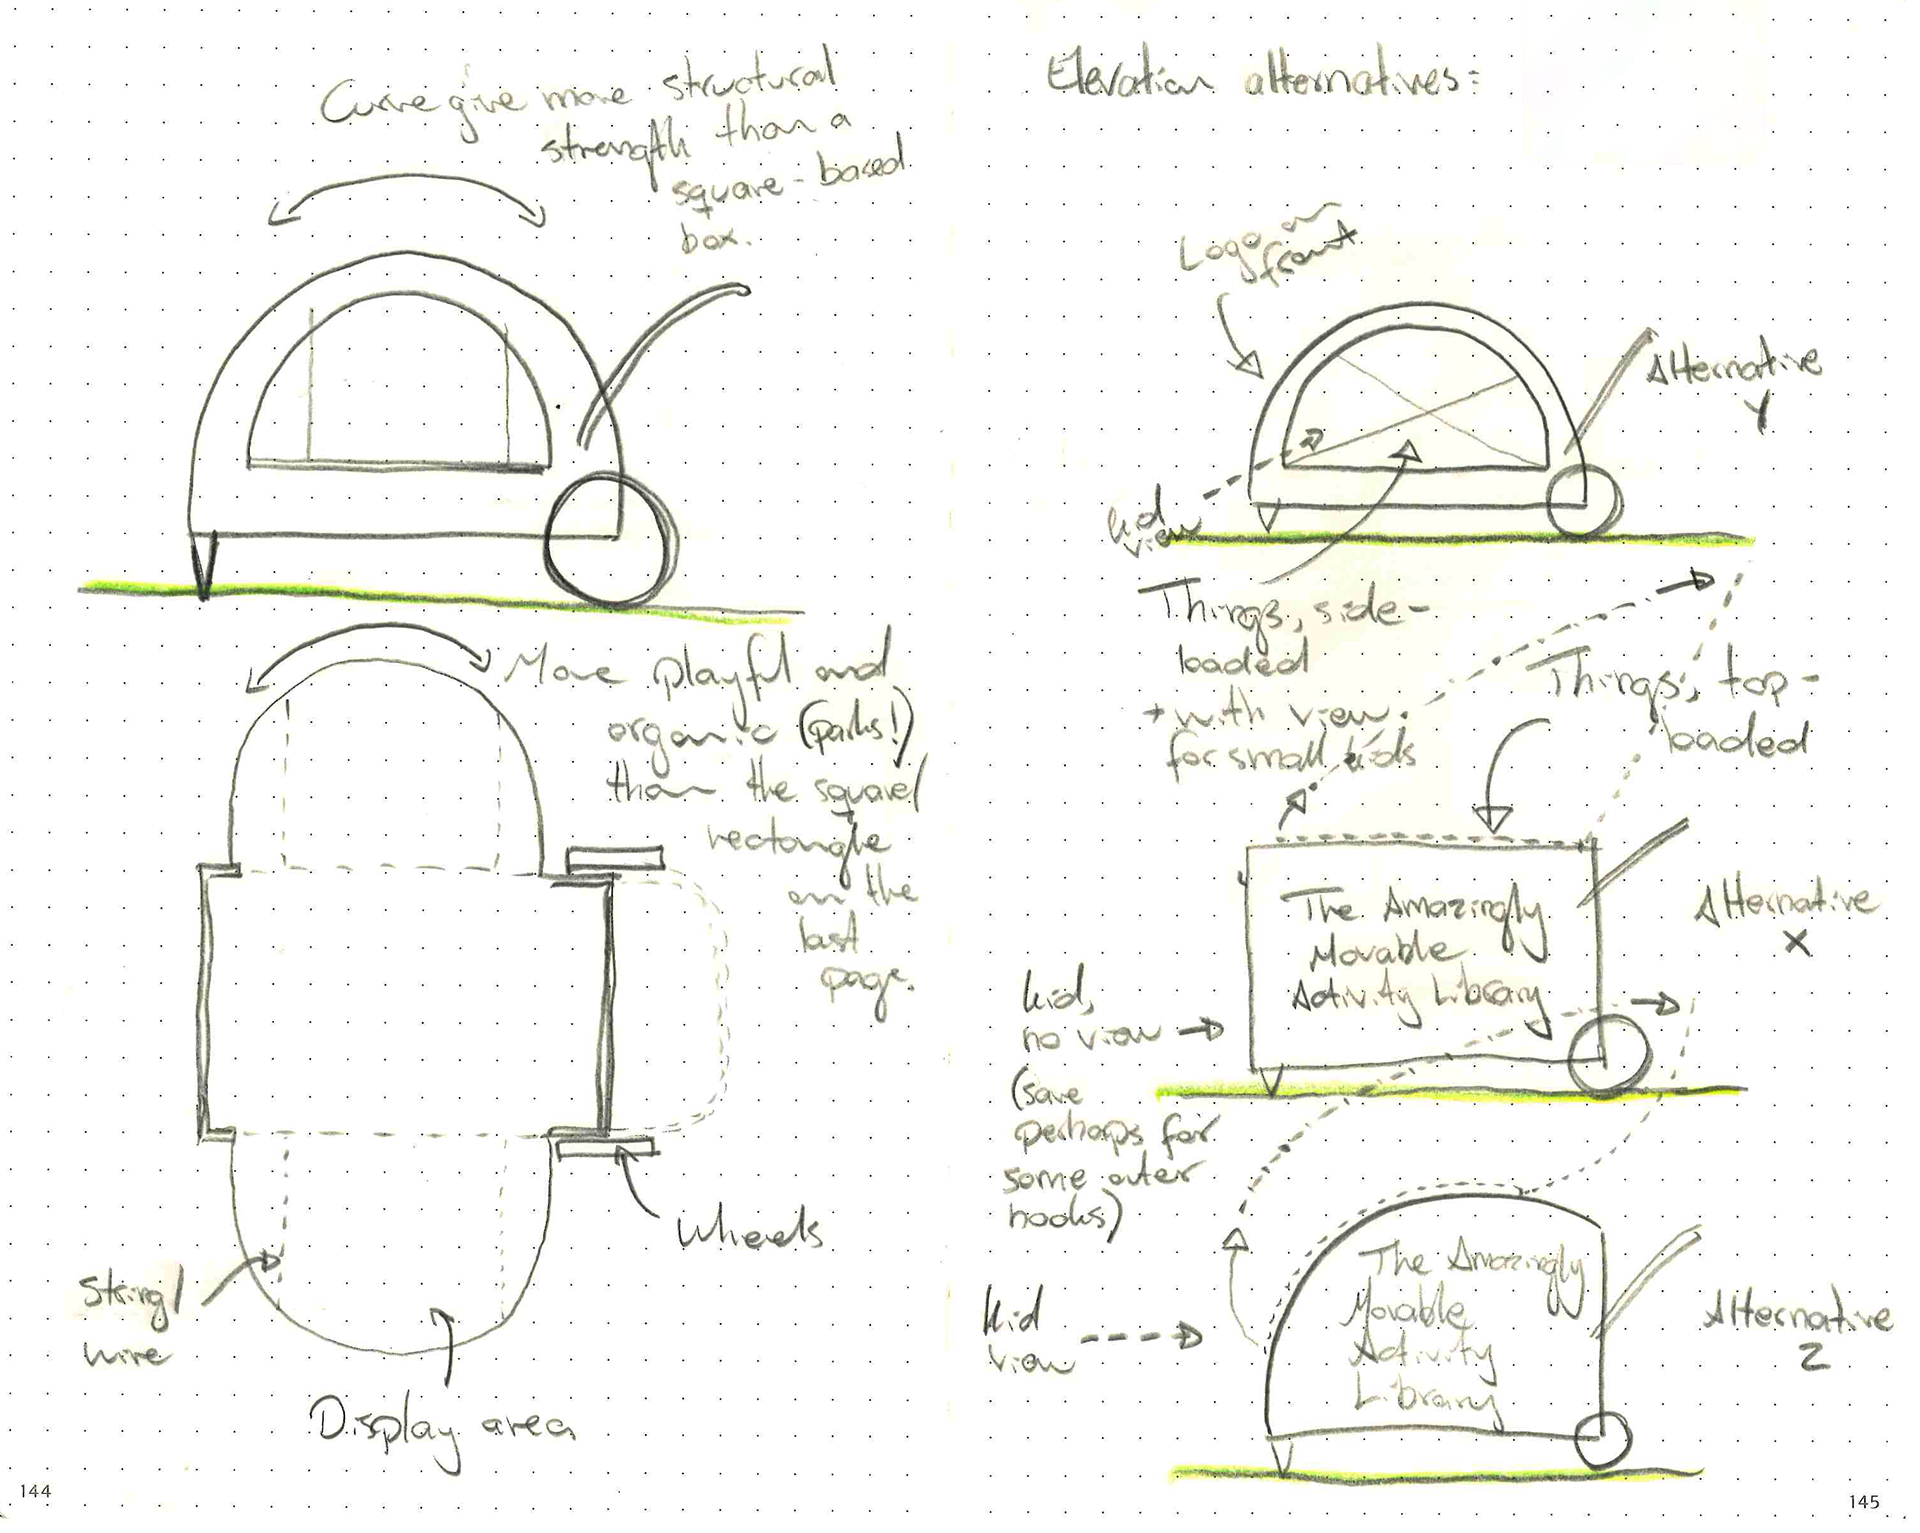 Curve give more structural
strength than a
square-based
box.
More playful and
organic (parks!)
than the square/
rectangle
on the
last
page.
Wheels
String/
wire
Display area
144
Elevation alternatives:
Logo on
front
Alternative
Y
kid
view
Things, side-
loaded
+ with view
for small kids
Things, top-
loaded
The Amazingly
Movable
Activity Library
Alternative
X
kid,
no view
(save
perhaps for
some outer
hooks)
The Amazingly
Movable
Activity
Library
kid
view
Alternative
Z
145